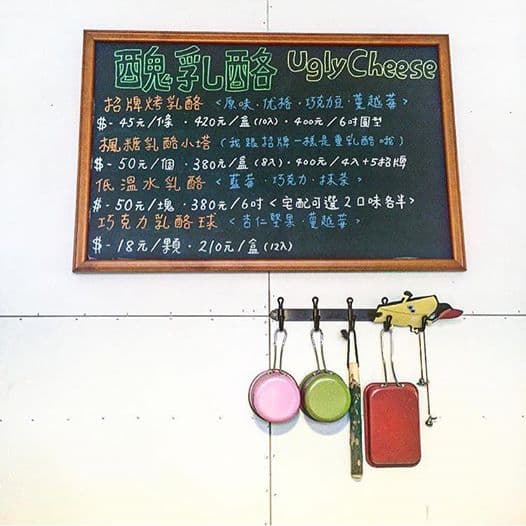 醜乳酪 Ugly Cheese
招牌烤乳酪 <原味·优格·巧克力豆·蔓越莓>
$-45元/條·420元/盒(10入)·400元/6吋圓型
楓糖乳酪小塔 (我跟招牌一樣是重乳酪啦)
$-50元/個·380元/盒(8入)·400元/4入+5招牌
低溫水乳酪 <藍莓·巧克力·抹茶>
$-50元/塊·380元/6吋<宅配可選2口味各半>
巧克力乳酪球 <杏仁堅果·蔓越莓>
$-18元/顆·210元/盒(12入)